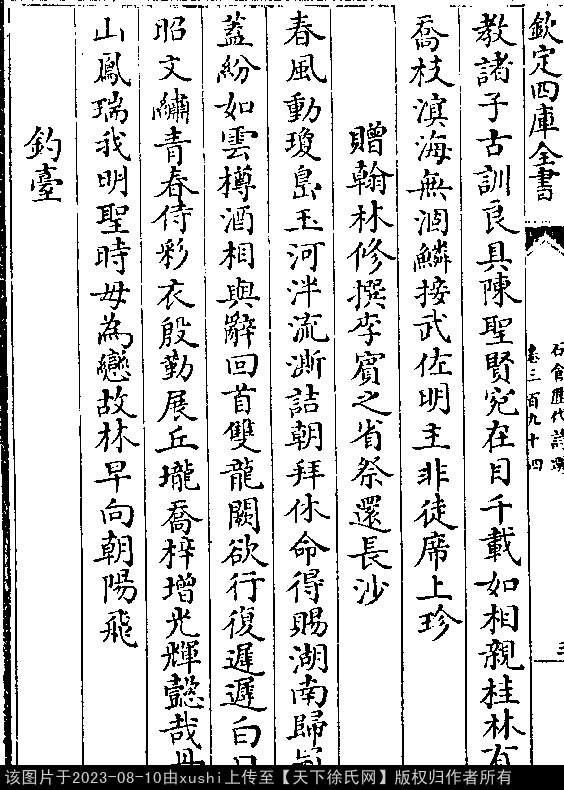 欽定四庫全書
教諸子古訓良具陳聖賢宛在目千載如相親桂林有
喬枝濵海無涸鱗接武佐明主非徒席上珍
贈翰林修撰李賓之省祭還長沙
春風動瓊島玉河泮流澌詰朝拜休命得賜湖南歸
蓋紛如雲樽酒相與辭回首雙龍闕欲行復遲遲白日
昭文繡青春侍彩衣殷勤展丘壠喬梓增光輝懿哉丹
山鳳瑞我明聖時毋為戀故林早向朝陽飛
釣臺
石倉歷代詩選
卷三百九十四
三
该图片于2023-08-10由xushi上传至【天下徐氏网】版权归作者所有